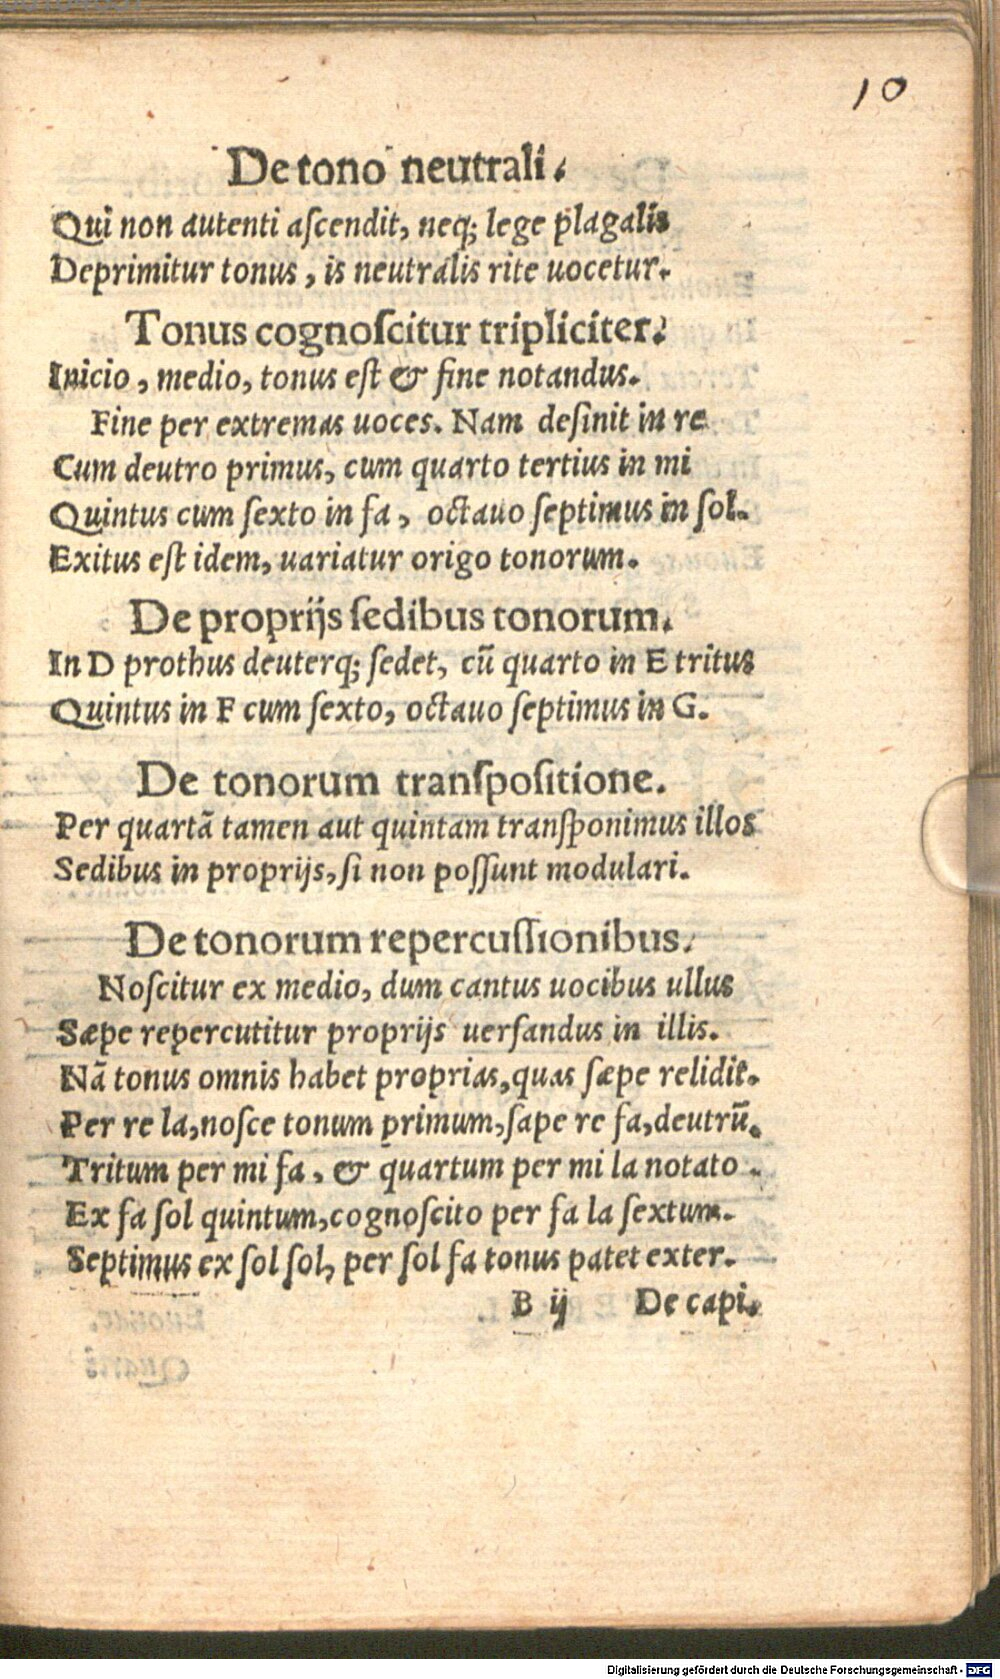 10
De tono neutrali.
Qui non autenti aſcendit, neq; lege plagalis
Deprimitur tonus, is neutralis rite uocetur.
Tonus cognoſcitur tripliciter.
Inicio, medio, tonus eſt & fine notandus.
Fine per extremas uoces. Nam deſinit in re
Cum deutro primus, cum quarto tertius in mi
Quintus cum ſexto in fa, octauo ſeptimus in ſol.
Exitus eſt idem, uariatur origo tonorum.
De proprijs ſedibus tonorum.
In D prothus deuterq; ſedet, cū quarto in E tritus
Quintus in F cum ſexto, octauo ſeptimus in G.
De tonorum tranſpoſitione.
Per quartã tamen aut quintam tranſponimus illos
Sedibus in proprijs, ſi non poſſunt modulari.
De tonorum repercuſſionibus.
Noſcitur ex medio, dum cantus uocibus ullus
Sæpe repercutitur proprijs uerſandus in illis.
Nã tonus omnis habet proprias, quas ſæpe relidit.
Per re la, noſce tonum primum, ſape re fa, deutrū.
Tritum per mi fa, & quartum per mi la notato.
Ex fa ſol quintum, cognoſcito per fa la ſextum.
Septimus ex ſol ſol, per ſol fa tonus patet exter.
B ij De capi.
Digitalisierung gefördert durch die Deutsche Forschungsgemeinschaft - DFG